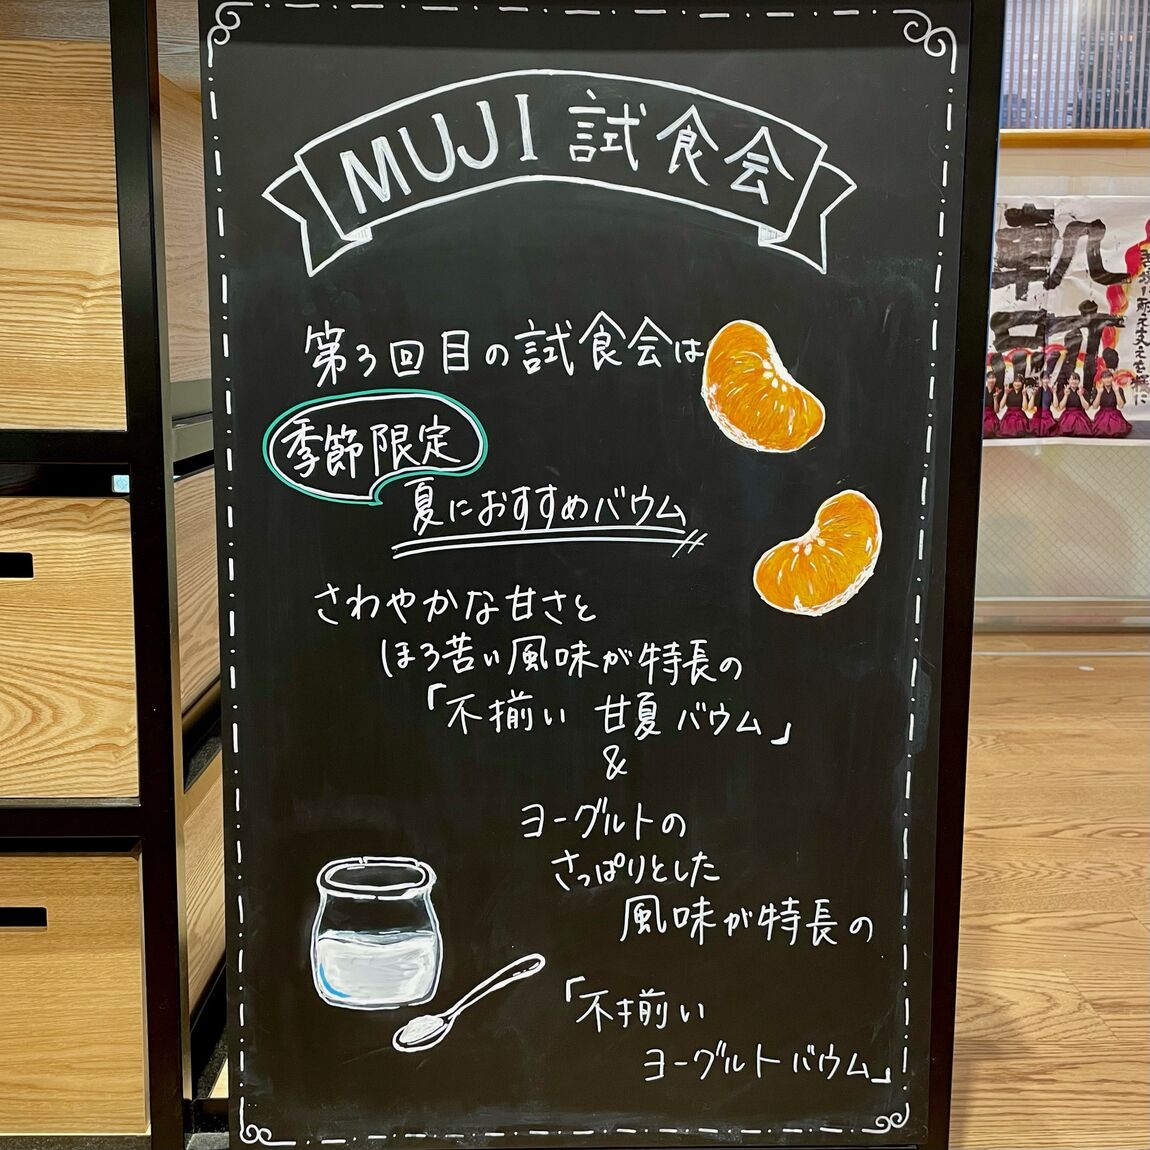 MUJI 試食会
第3回目の試食会は
季節限定
夏におすすめバウム
さわやかな甘さと
ほろ苦い風味が特長の
「不揃い 甘夏バウム」
&
ヨーグルトの
さっぱりとした
風味が特長の
「不揃い
ヨーグルトバウム」
軌跡